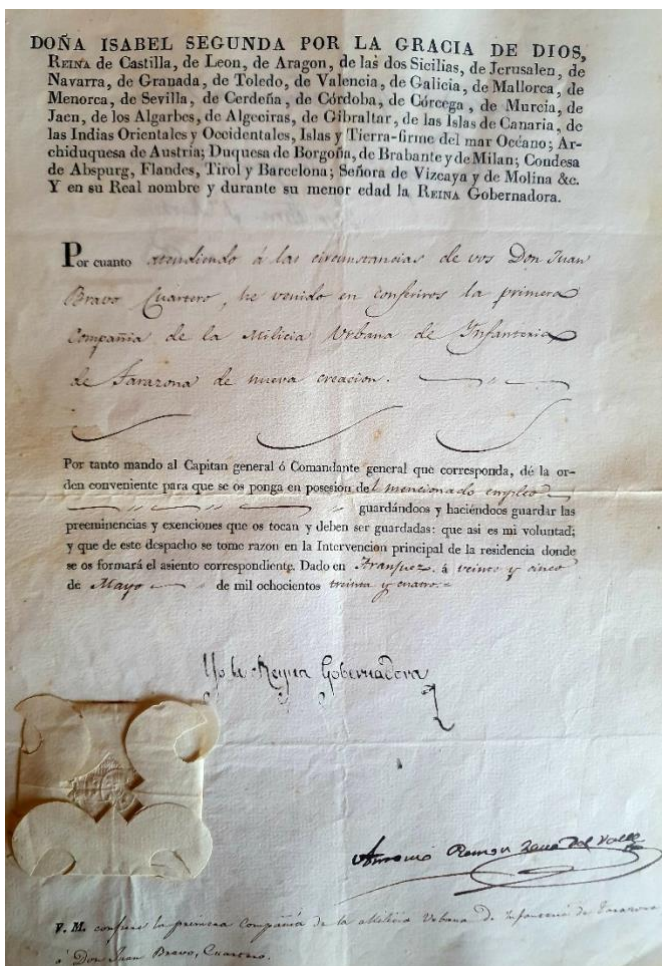 DOÑA ISABEL SEGUNDA POR LA GRACIA DE DIOS,
REINA de Castilla, de Leon, de Aragon, de las dos Sicilias, de Jerusalen, de
Navarra, de Granada, de Toledo, de Valencia, de Galicia, de Mallorca, de
Menorca, de Sevilla, de Cerdeña, de Córdoba, de Córcega, de Murcia, de
Jaen, de los Algarbes, de Algeciras, de Gibraltar, de las Islas de Canaria, de
las Indias Orientales y Occidentales, Islas y Tierra-firme del mar Océano; Ar-
chiduquesa de Austria; Duquesa de Borgoña, de Brabante y de Milan; Condesa
de Abspurg, Flandes, Tirol y Barcelona; Señora de Vizcaya y de Molina &c.
Y en su Real nombre y durante su menor edad la REINA Gobernadora.
Por cuanto atendiendo á las circunstancias de vos Don Juan
Bravo Cuartero, he venido en conferiros la primera
Compañia de la Milicia Urbana de Infanteria
de Tarazona de nueva creacion.
Por tanto mando al Capitan general ó Comandante general que corresponda, dé la or-
den conveniente para que se os ponga en posesion del mencionado empleo
guardándoos y haciéndoos guardar las
preeminencias y exenciones que os tocan y deben ser guardadas: que asi es mi voluntad;
y que de este despacho se tome razon en la Intervencion principal de la residencia donde
se os formará el asiento correspondiente. Dado en Aranjuez á veinte y cinco
de Mayo de mil ochocientos treinta y cuatro.
Yo la Reyna Gobernadora
Antonio Ramon Zarco del Valle
V. M. confiere la primera Compañia de la Milicia Urbana de Infanteria de Tarazona
á Don Juan Bravo, Cuartero.